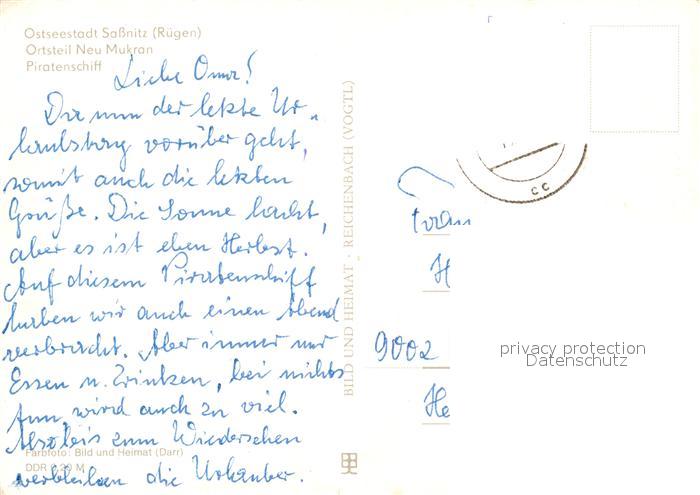 Ostseestadt Saßnitz (Rügen)
Ortsteil Neu Mukran
Piratenschiff
Liebe Oma!
Da nun der letzte Ur-
laubstag vorüber geht,
somit auch die letzten
Grüße. Die Sonne lacht,
aber es ist eben Herbst.
Auf diesem Piratenschiff
haben wir auch einen Abend
verbracht. Aber immer nur
Essen u. Trinken, bei nichts
tun, wird auch zu viel.
Also bis zum Wiedersehen
verbleiben die Urlauber.
Farbfoto: Bild und Heimat (Darr)
DDR 0,20 M
BILD UND HEIMAT · REICHENBACH (VOGTL)
cc
Frau
H
9002
He
privacy protection
Datenschutz